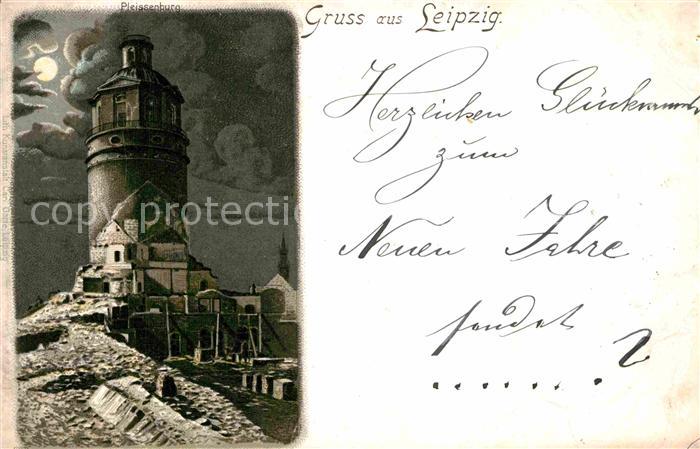 Pleissenburg
Gruss aus Leipzig.
Herzlichen Glückwunsch
zum
Neuen Jahre
sendet
copyright protection